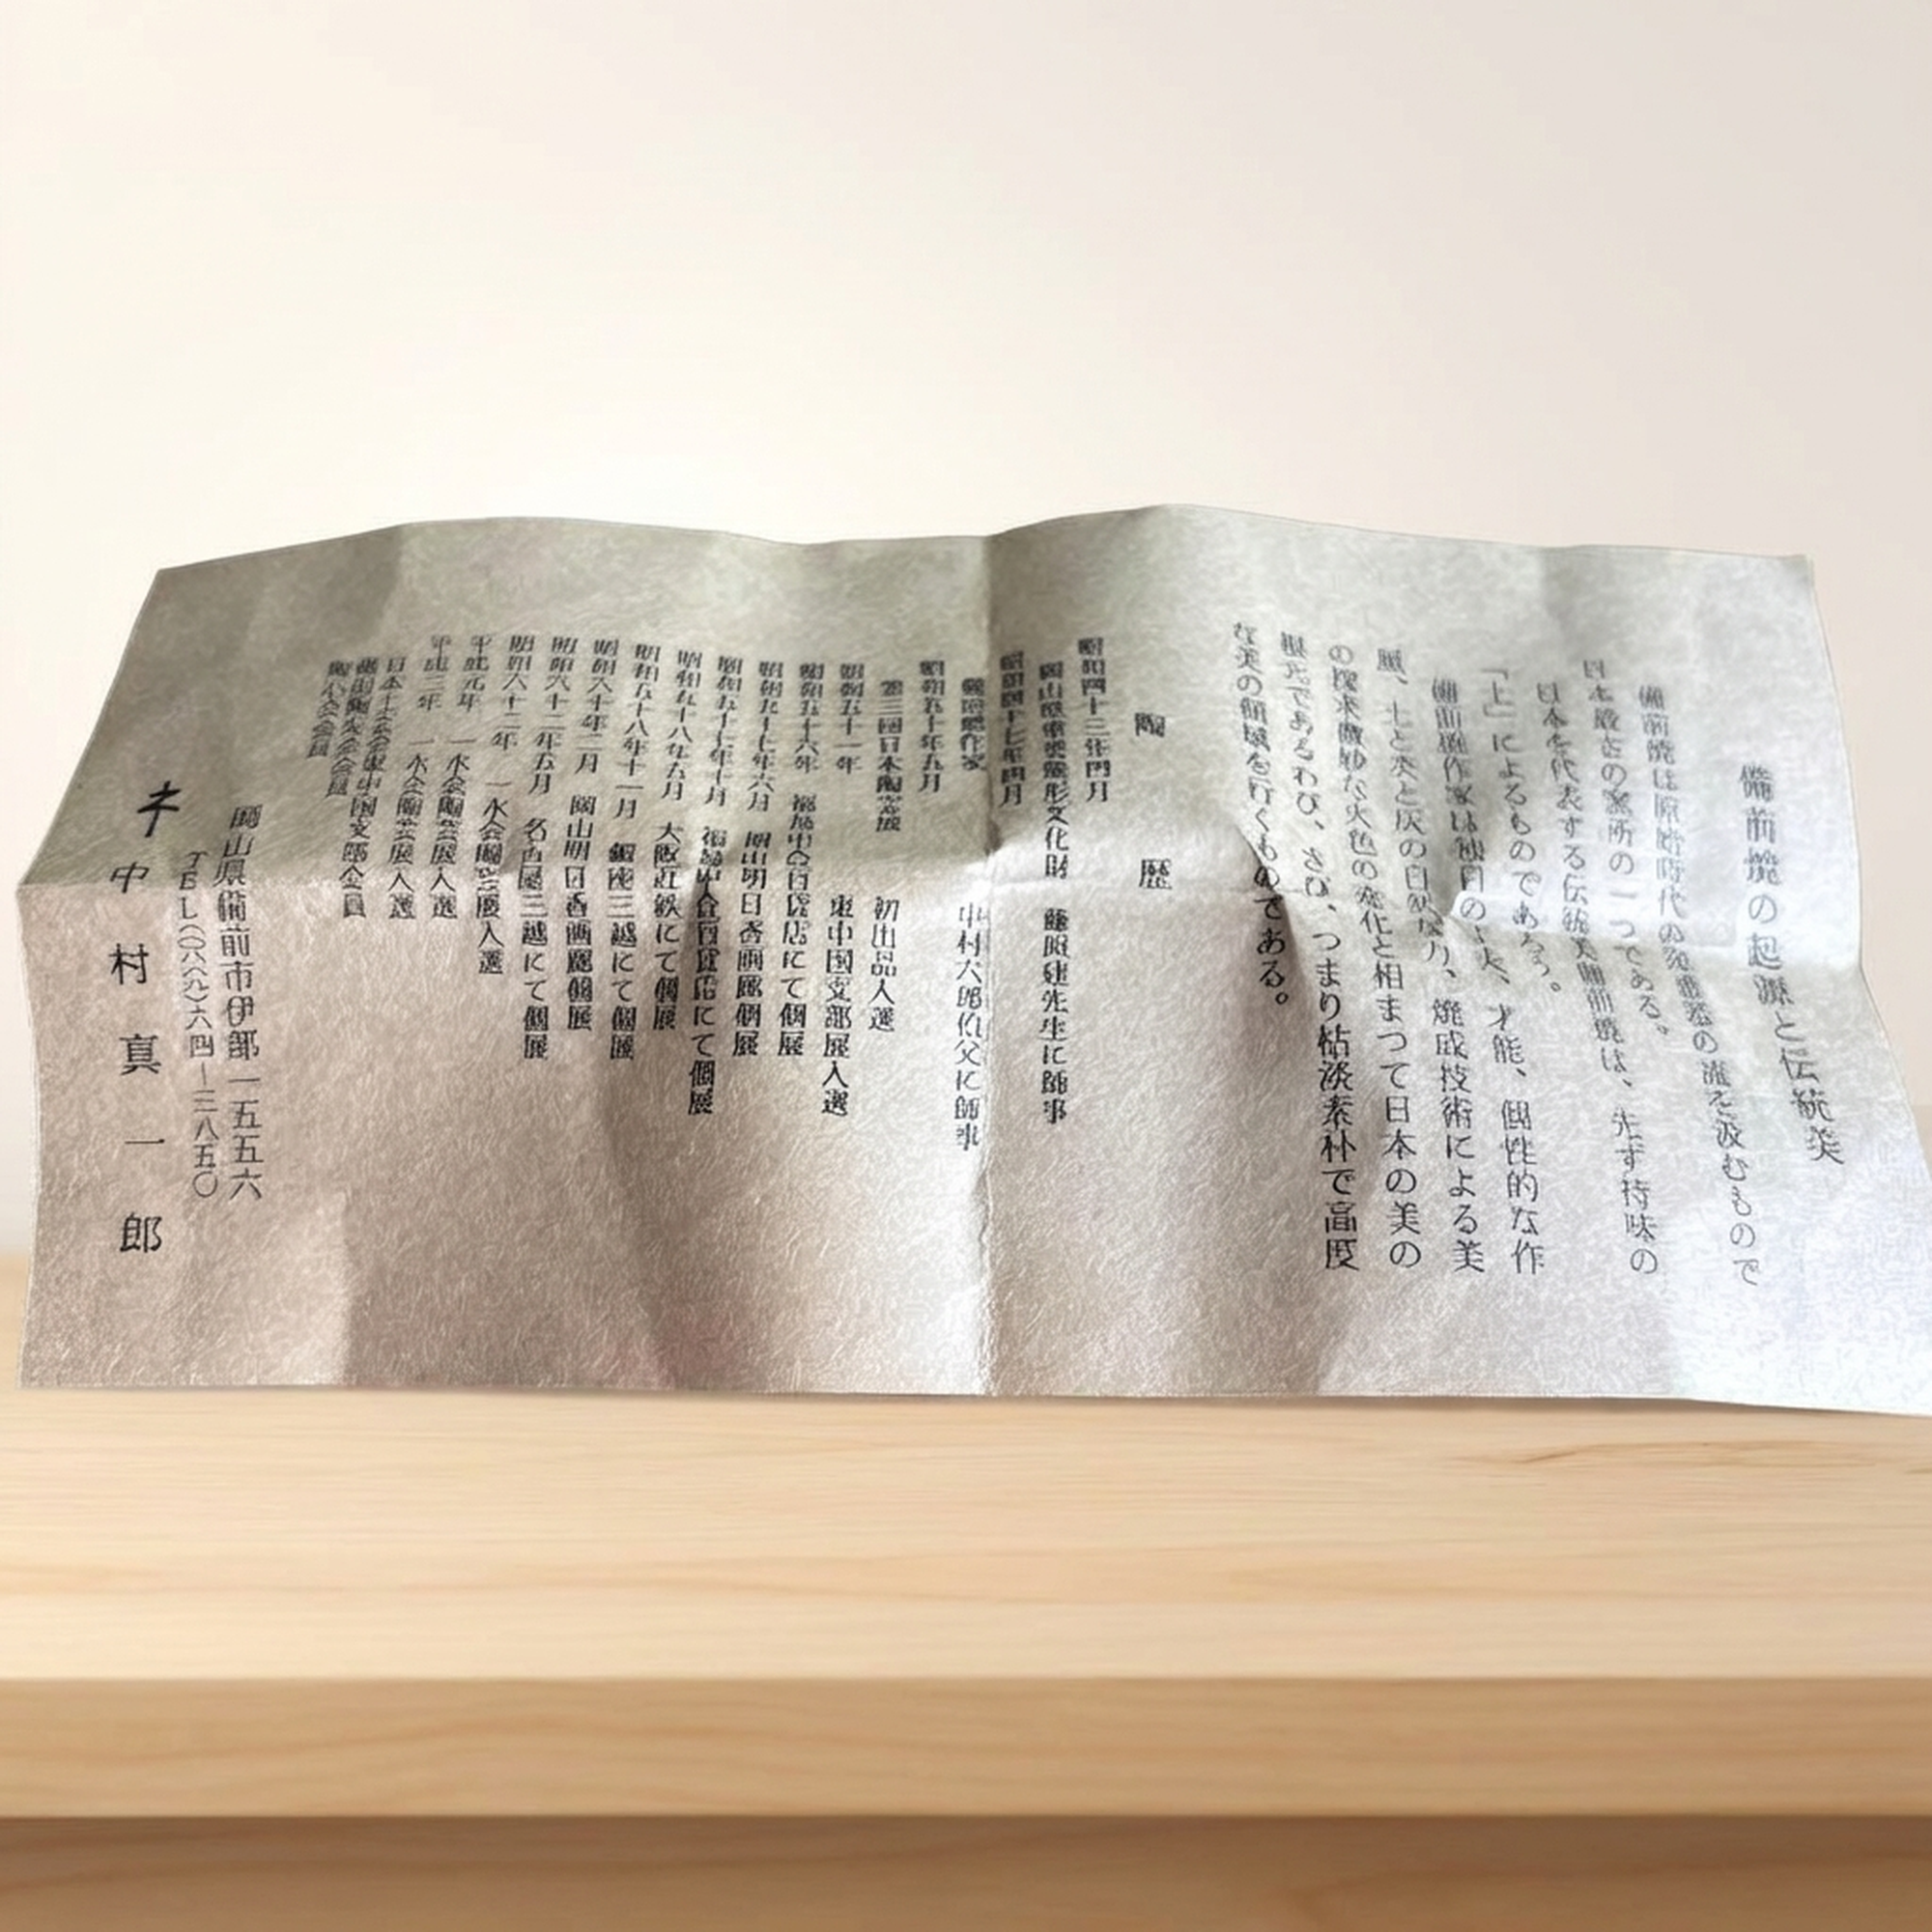 備前焼の起源と伝統美
備前焼は原始時代の須恵器の流を汲むもので
日本最古の窯所の一つである。
日本を代表する伝統美備前焼は、先ず持味の
「土」によるものであろう。
備前焼作家は独自の工夫、才能、個性的な作
風、土と炎と灰の自然な力、焼成技術による美
の探求微妙な火色の変化と相まつて日本の美の
根元であるわび、さび、つまり枯淡素朴で高度
な美の領域を行くものである。
陶歴
昭和四十三年四月
岡山県重要無形文化財 藤原建先生に師事
昭和四十七年四月
中村六郎伯父に師事
昭和五十年五月
第三回日本陶芸展 初出品入選
昭和五十一年 東中国支部展入選
昭和五十六年 福屋中合百貨店にて個展
昭和五十七年六月 岡山明日香画廊個展
昭和五十七年十月 福島中合百貨店にて個展
昭和五十八年五月 大阪近鉄にて個展
昭和五十八年十一月 銀座三越にて個展
昭和六十年二月 岡山明日香画廊個展
昭和六十二年五月 名古屋三越にて個展
昭和六十二年 一水会陶芸展入選
平成元年 一水会陶芸展入選
平成三年 一水会陶芸展入選
日本工芸会東中国支部会員
岡山県備前市伊部一五五六
TEL(〇八六九)六四ー二八五〇
中村真一郎